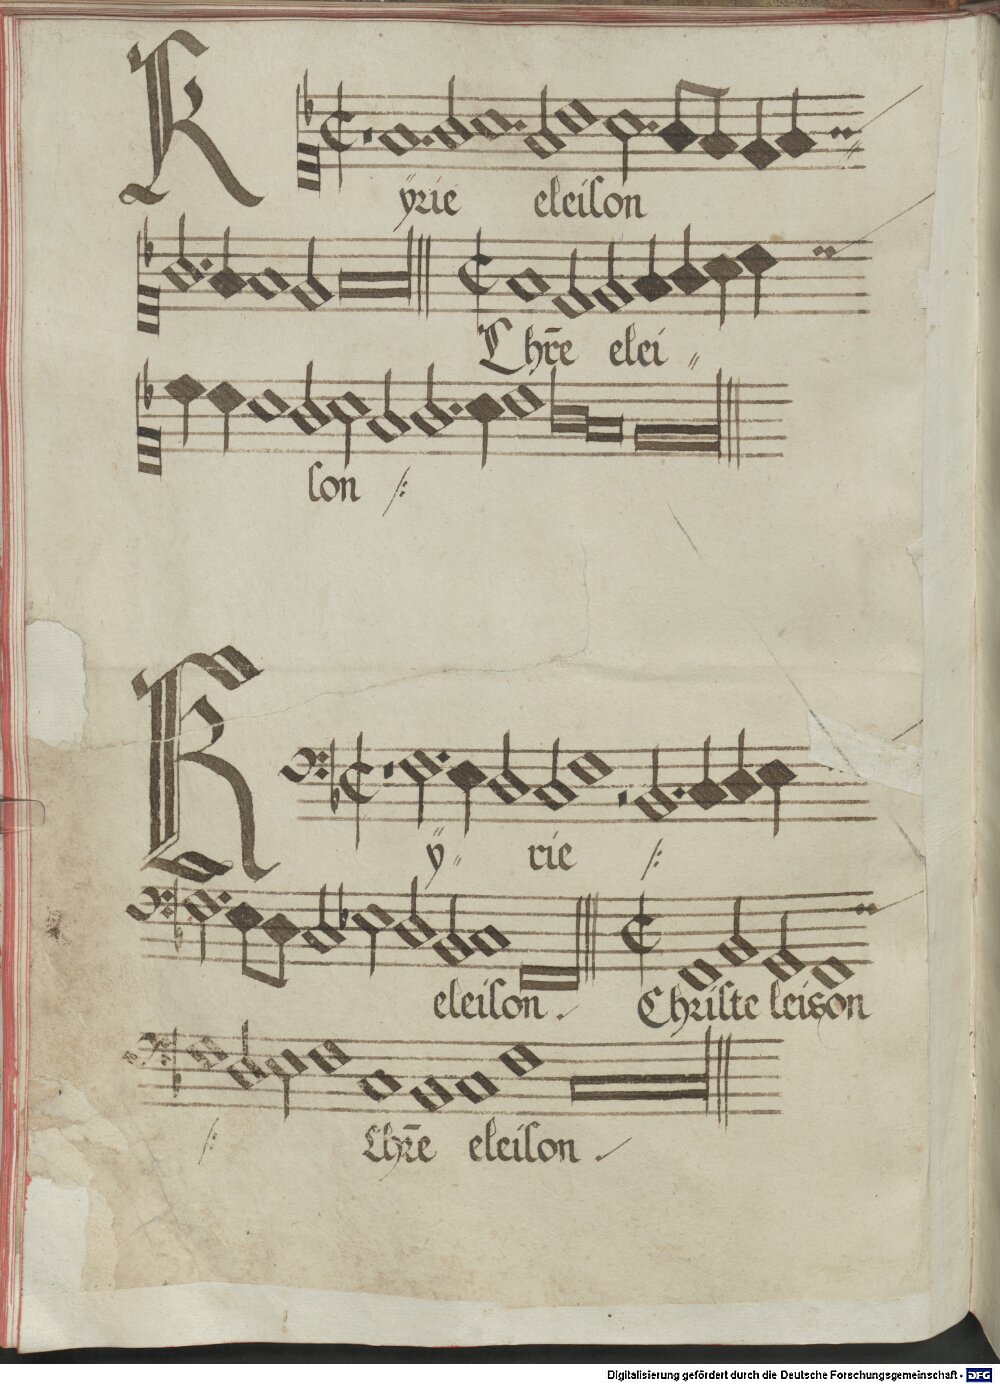 Kyrie eleiſon
Chr̄e elei〃
ſon /:
Ky〃 rie /:
eleiſon. Chriſte leiſon
/: Chr̄e eleiſon.
Digitalisierung gefördert durch die Deutsche Forschungsgemeinschaft - DFG